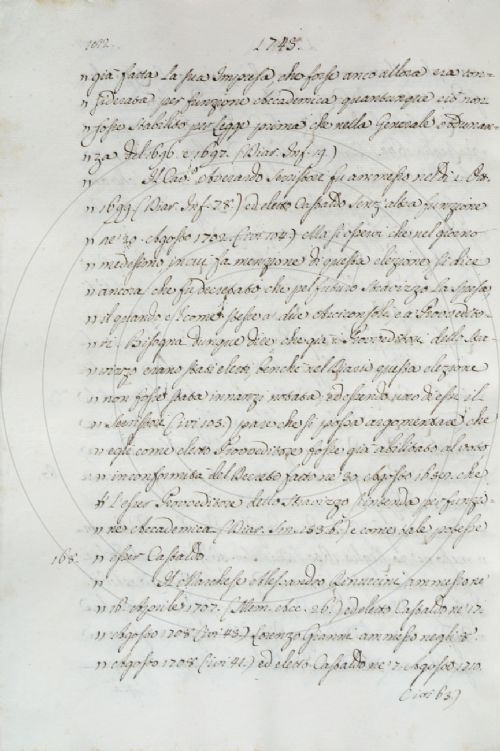 1012. 1745.
" già fatta la sua Impresa, che forse anco allora era con=
" siderata per funzione Accademica quantunque ciò non
" fosse stabilito per Legge prima che nella Generale adunan=
" za del 1696. e 1697. (Diar. Inf. 19.)
" Il Cav. Averardo Serristori fu ammesso ne' di
" 1699. (Diar. Inf. 78.) ed eletto Castaldo senz'altra funzione
" ne' 30. Agosto 1702. (ivi 104.) ella si osservi che nel giorno
" medesimo in cui fa menzione di questa elezione si dice
" ancora, che fu decretato che pel futuro Stravizzo la spesa
" si come stesse a due Arciconsoli, e a' Provvedito=
" ri. Bisogna dunque dire che già i Provveditori dello Stra=
" vizzo erano stati eletti, benchè nel Diario questa elezione
" non fosse stata innanzi notata, ed essendo uno di essi il
" Serristori (ivi 105.) pare che si possa argomentare che
" egli come eletto Provveditore fosse già abilitato al voto
" in conformità del Decreto fatto ne' 30. Agosto 1650. che
" l'esser Provveditore dello Stravizzo s'intenda per funzio=
" ne Accademica (Diar. 133. b.) e come tale potesse
168. " esser Castaldo.
" Il Marchese Alessandro Rinuccini ammesso ne'
" 16. Aprile 1707. (Mem. Acc. 26.) ed eletto Castaldo ne' 17.
" Agosto 1708. (ivi 43.) Lorenzo Gianni ammesso negli 8.
" Agosto 1708. (ivi 41.) ed eletto Castaldo ne' 7. Agosto 1710.
(ivi 63.)